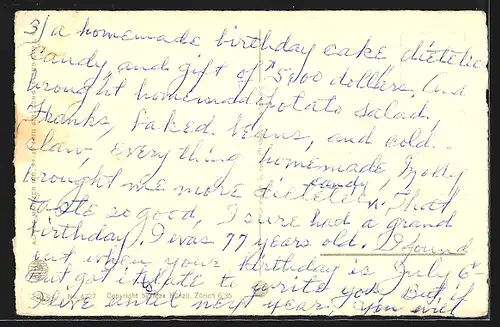 3/ a homemade birthday cake, dietetic
candy and gift of $5.00 dollars. And
brought homemade potato salad,
franks, baked beans, and cold
slaw, everything homemade, Molly
brought me more dietetic candy. That
taste so good, I sure had a grand
birthday. I was 77 years old. I found
out when your birthday is July 6th
but got it late to write you. But if
I live until next year, you will
Copyright by Max Künzli, Zürich 6/35